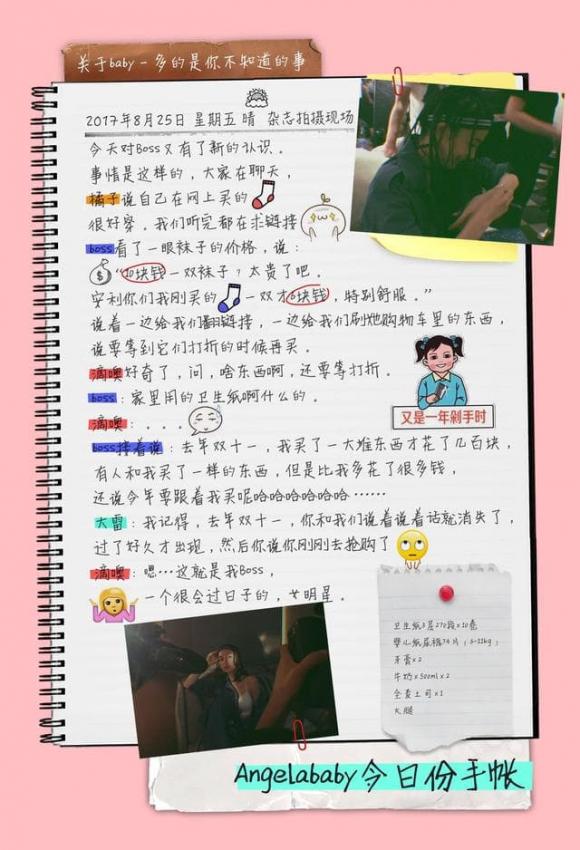 关于baby-多的是你不知道的事
2017年8月25日 星期五 晴 杂志拍摄现场
今天对Boss又有了新的认识。
事情是这样的，大家在聊天，
橘子说自己在网上买的
很好穿。我们听完都在求链接
boss看了一眼袜子的价格，说：
$
“10块钱一双袜子？太贵了吧。
安利你们我刚买的 一双才6块钱，特别舒服。”
说着一边给我们翻链接，一边给我们刷她购物车里的东西，
说要等到它们打折的时候再买。
滴噢好奇了，问，啥东西啊，还要等打折。
boss：家里用的卫生纸啊什么的。
又是一年剁手时
滴噢：...
boss接着说：去年双十一，我买了一大堆东西才花了几百块，
有人和我买了一样的东西，但是比我多花了很多钱，
还说今年要跟着我买呢哈哈哈哈哈哈……
大雷：我记得，去年双十一，你和我们说着说着话就消失了，
过了好久才出现，然后你说你刚刚去抢购了
滴噢：嗯…这就是我Boss，
一个很会过日子的，女明星。
卫生纸3层270段x10卷
婴儿纸尿裤74片
牙膏x2
牛奶x500ml x2
全麦土司x1
火腿
Angelababy今日份手帐